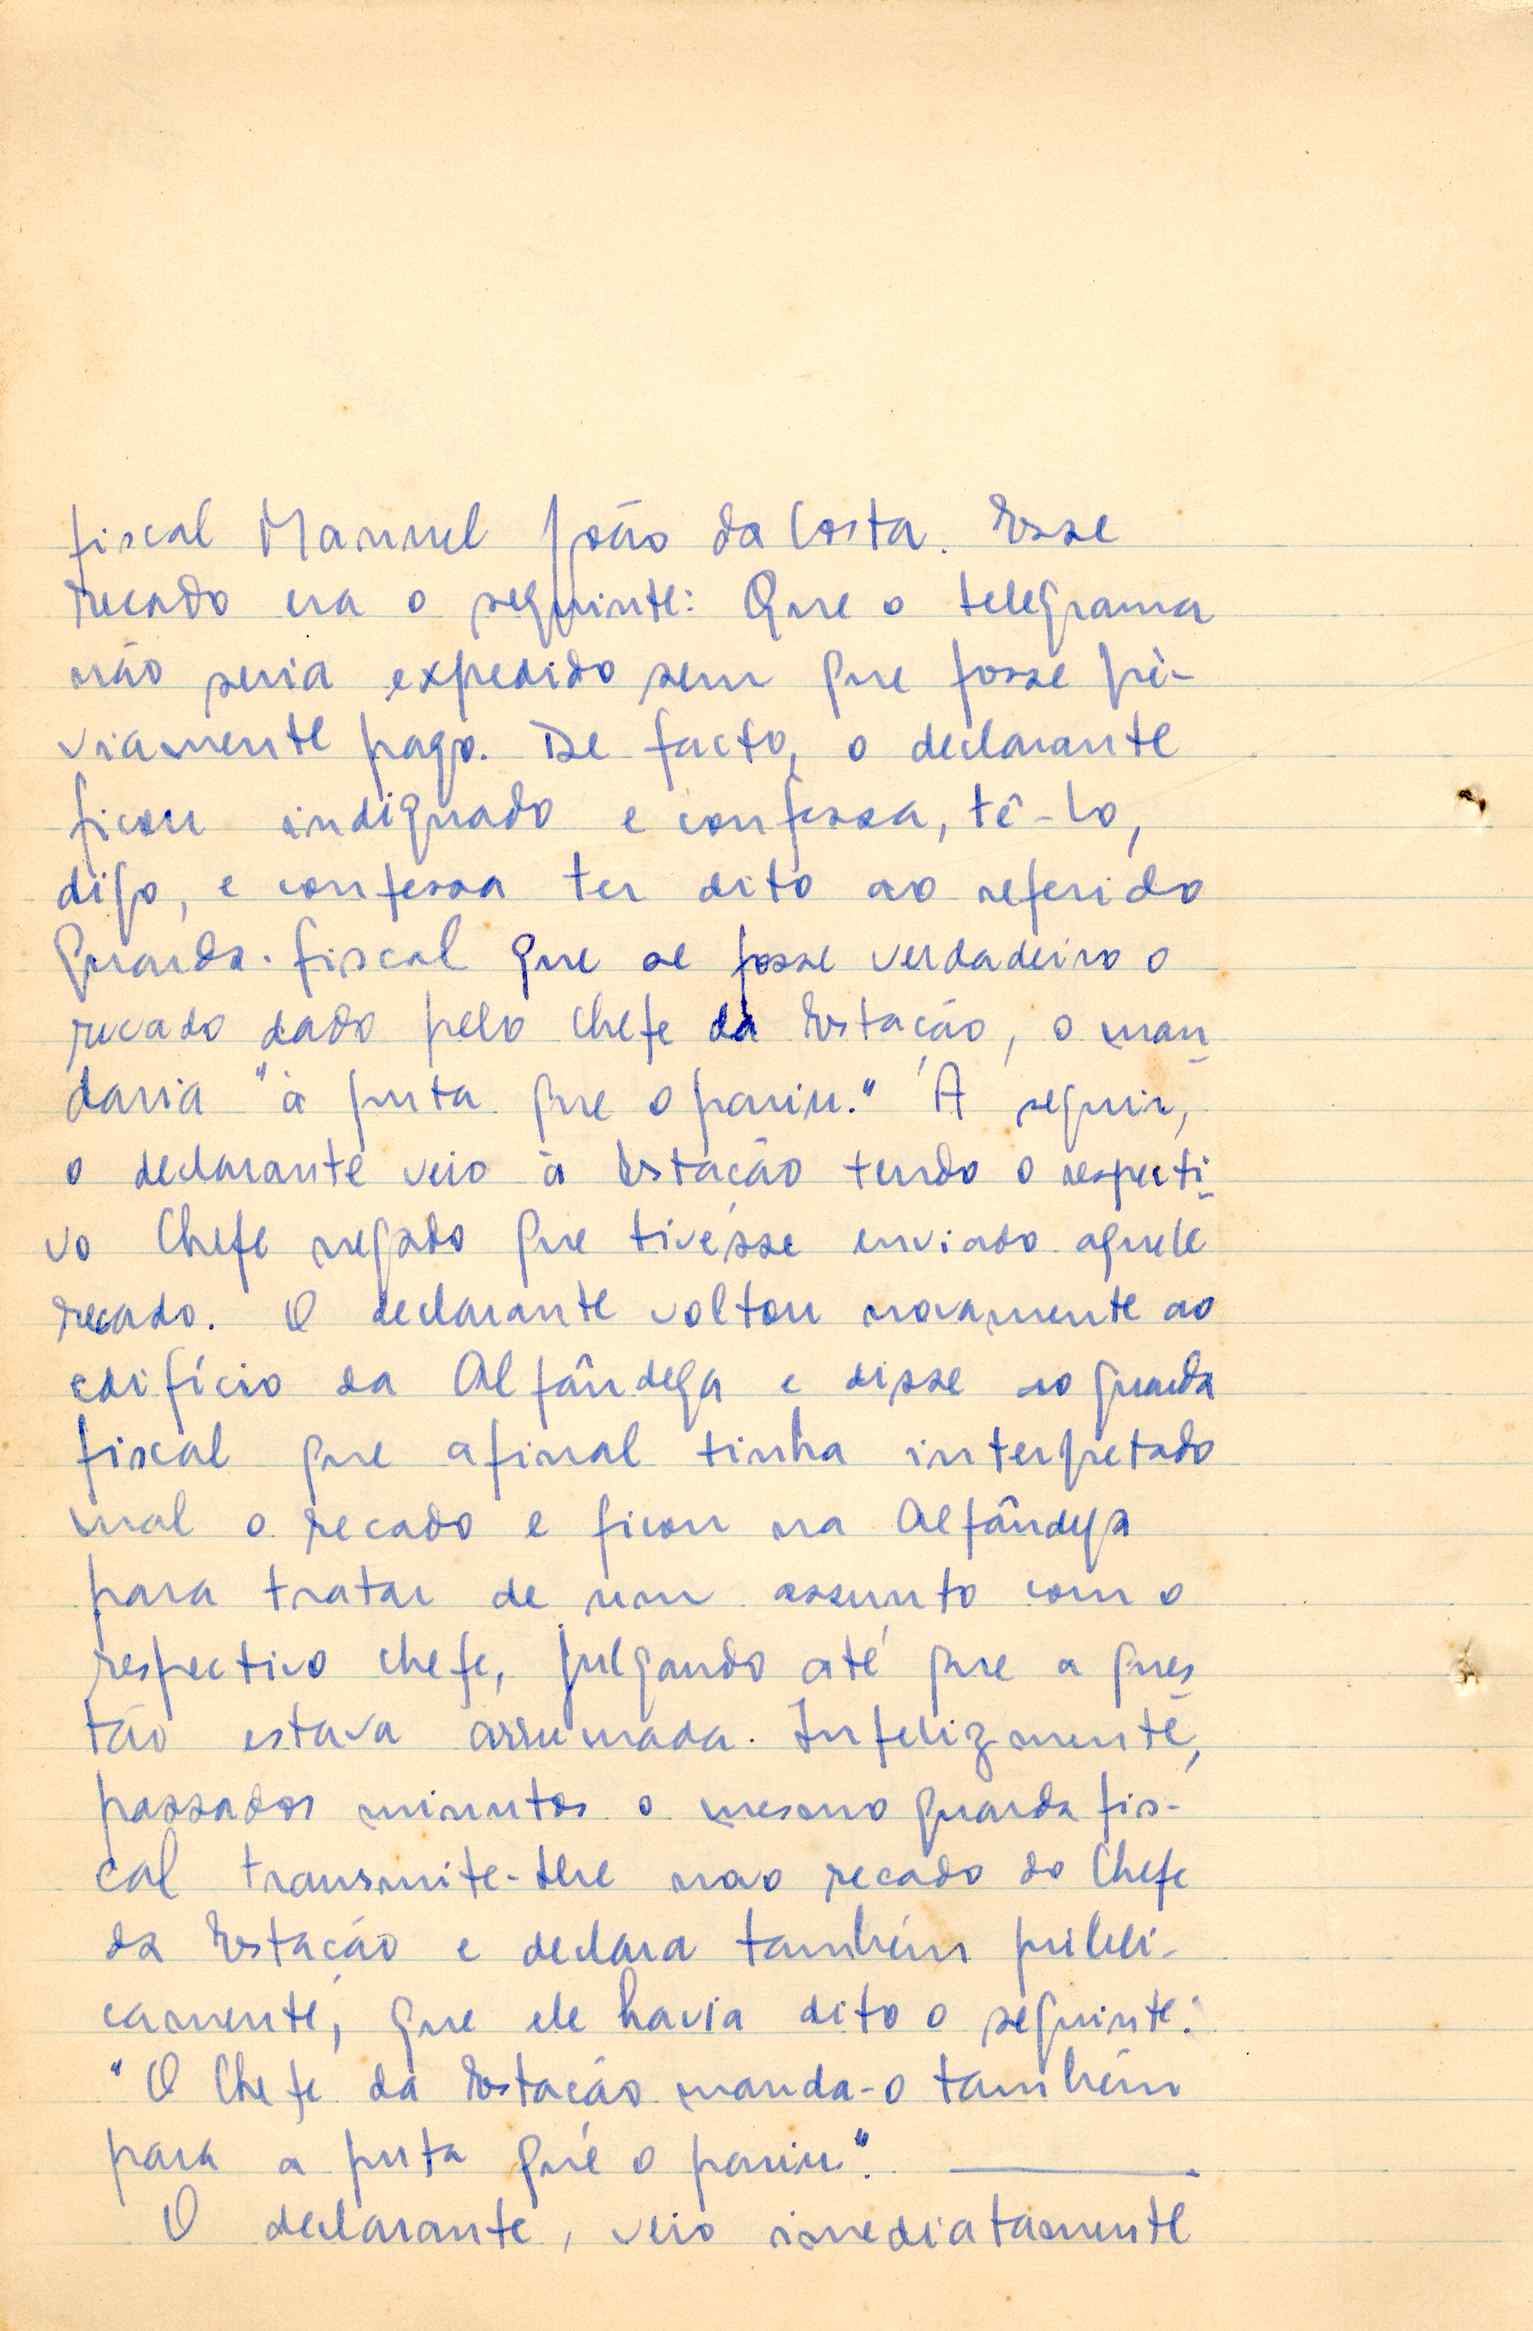 fiscal Manuel João da Costa. Esse
recado era o seguinte: Que o telegrama
não seria expedido sem que fosse prè-
viamente pago. De facto, o declarante
ficou indignado e confessa, tê-lo,
digo, e confessa ter dito ao referido
Guarda-fiscal que se fosse verdadeiro o
recado dado pelo Chefe da Estação, o man
daria "à puta que o pariu." A seguir,
o declarante veio à Estação tendo o respecti
vo Chefe negado que tivésse enviado aquele
recado. O declarante voltou novamente ao
edifício da Alfândega e disse ao guarda
fiscal que afinal tinha interpretado
mal o recado e ficou na Alfândega
para tratar de um assunto com o
respectivo chefe, julgando até que a ques
tão estava arrumada. Infelizmente,
passados minutos o mesmo guarda fis-
cal transmite-lhe novo recado do Chefe
da Estação e declara também públi-
camente, que ele havia dito o seguinte:
"O Chefe da Estação manda-o também
para a puta que o pariu".
O declarante, veio imediatamente